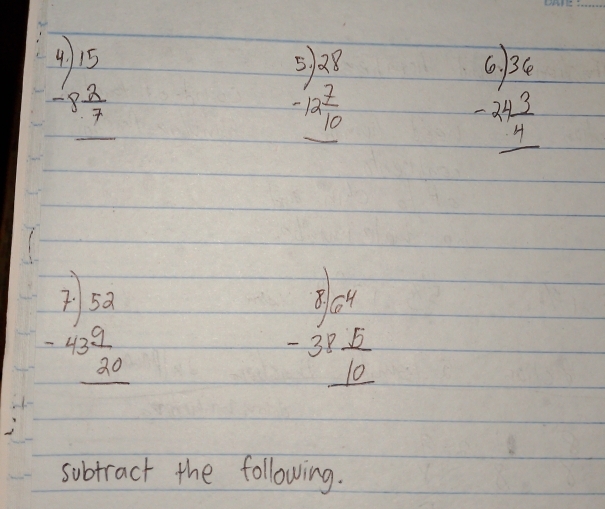 DATE:
4.) 15 5.) 28 6.) 36
- 8 2/7 - 12 7/10 - 24 3/4
7.) 52 8.) 64
- 43 9/20 - 38 5/10
subtract the following.